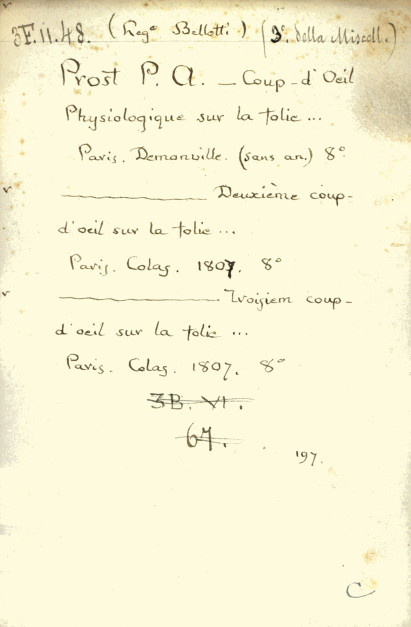 3F.II.48. (Leg° Bellotti) (3°. della Miscell.)
Prost P. A. — Coup-d'Oeil
Physiologique sur la folie ...
Paris. Demonville. (sans an.) 8°
Deuxième coup-
d'oeil sur la folie ...
Paris. Colas. 1807. 8°
Troisiem coup-
d'oeil sur la folie ...
Paris. Colas. 1807. 8°
3B. VI.
67.
197.
C